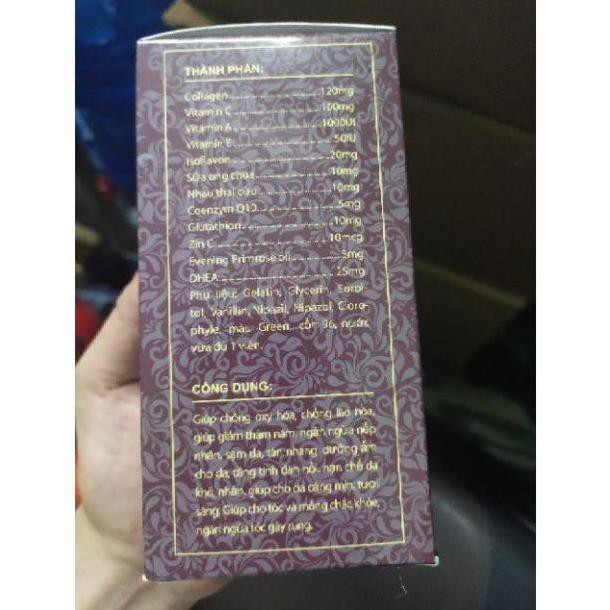 THÀNH PHẦN:
Collagen..........120mg
Vitamin C..........100mg
Vitamin A..........1000UI
Vitamin E..........50IU
Isoflavon..........20mg
Sữa ong chúa..........10mg
Nhau thai cừu..........10mg
Coenzym Q10..........5mg
Glutathion..........10mg
Zin C..........10mcg
Evening Primrose oil..........5mg
DHEA..........25mg
Phụ liệu: Gelatin, Glycerin, Sorbi-
tol, Vanillin, Nipazil, Nipazol, Cloro-
phyle, màu Green, cồn 96, nước
vừa đủ 1 viên.
CÔNG DỤNG:
Giúp chống oxy hóa, chống lão hóa,
giúp giảm thâm nám, ngăn ngừa nếp
nhăn, sạm da, tàn nhang, dưỡng ẩm
cho da, tăng tính đàn hồi, hạn chế da
khô, nhăn, giúp cho da căng mịn, tươi
sáng. Giúp cho tóc và móng chắc khỏe,
ngăn ngừa tóc gãy rụng.